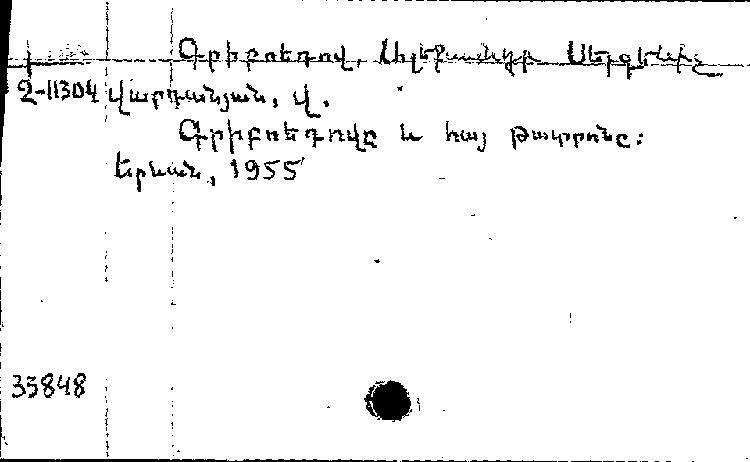 Գրիբոեդով, Ալեքսանդր Սերգեևիչ
2-11304 Վարդանյան, Վ.
Գրիբոեդովը և հայ թատրոնը:
Երևան, 1955
33848